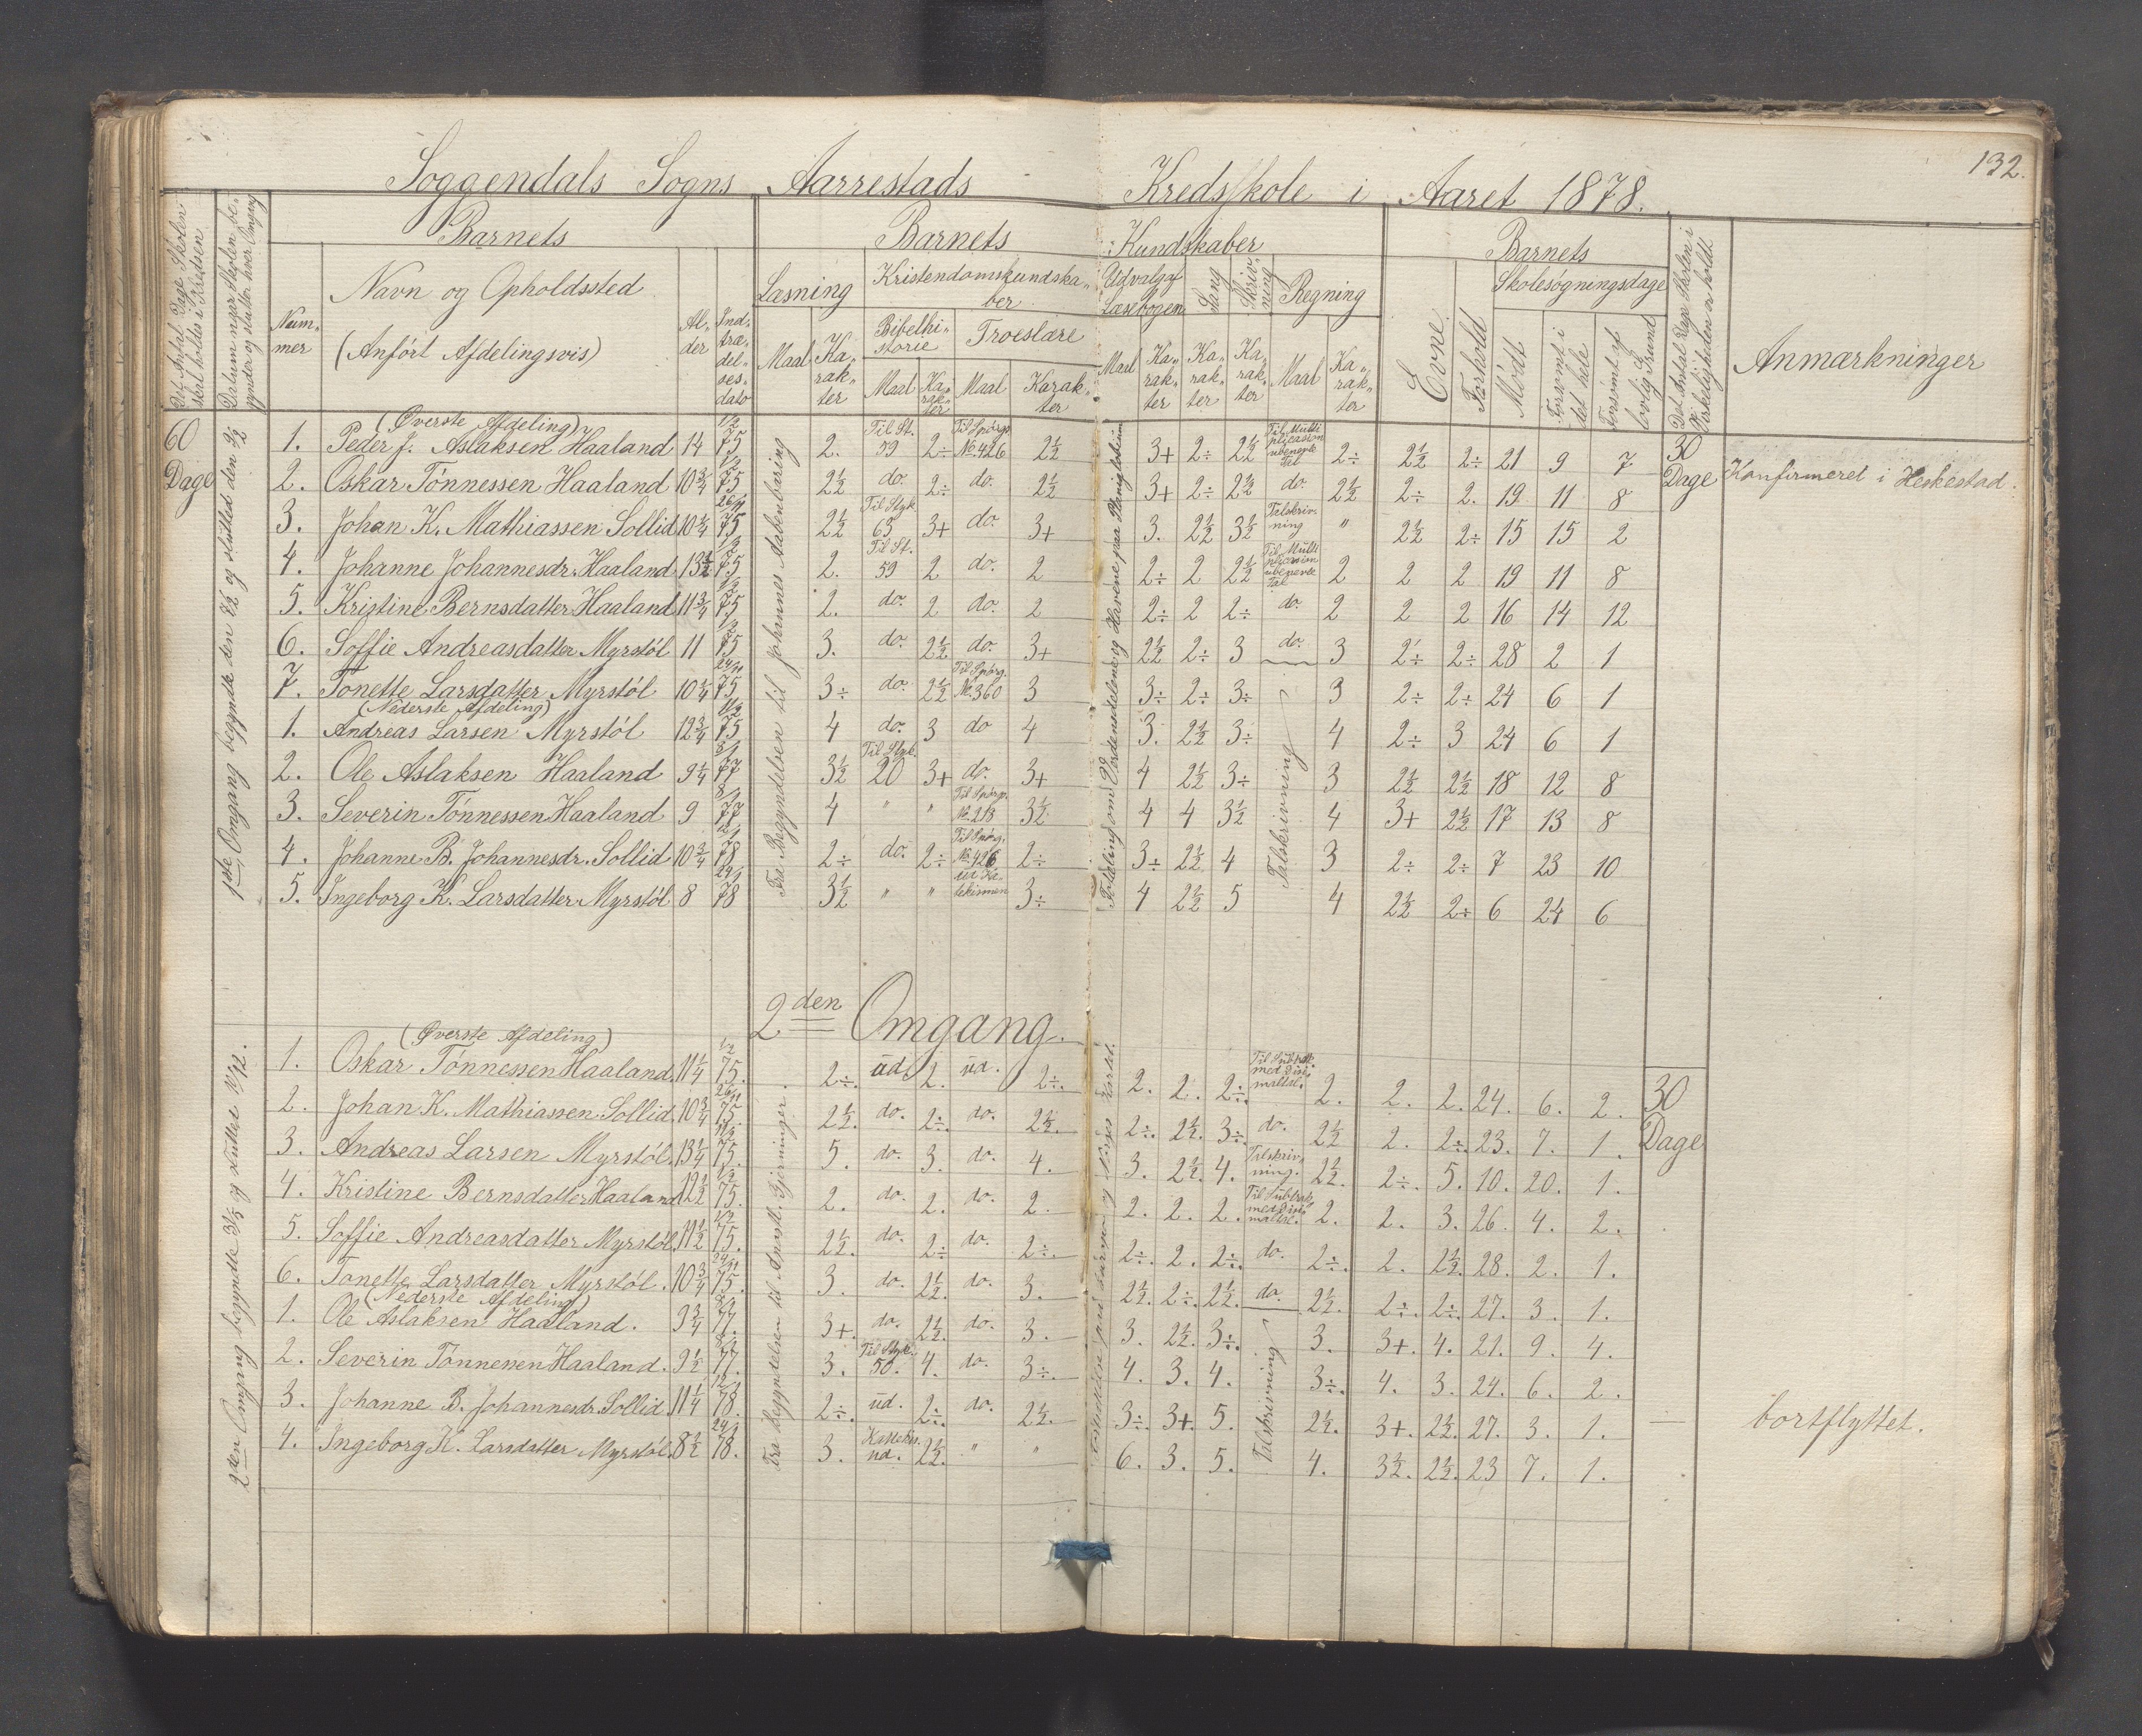 132.
Soggendals Sogns Aarrestads Kredsskole i Aaret 1878.
Det Antal Dage Skolen skal holdes i Kredsen
Datum naar Skolen begynder og slutter hver Omgang
Barnets
Nummer
Navn og Opholdssted
(Anført Afdelingsvis)
Alder
Indtrædelsesdato
Barnets Kundskaber
Læsning
Maal
Karakter
Kristendomskundskaber
Bibelhistorie
Maal
Karakter
Troeslære
Maal
Karakter
Udvalg af Læsebogen
Maal
Karakter
Sang
Karakter
Skrivning
Karakter
Regning
Maal
Karakter
Barnets
Evne
Forhold
Skolesøgningsdage
Mødt
Forsømt i det hele
Forsømt af lovlig Grund
Det Antal Dage Skolen i Virkeligheden er holdt
Anmærkninger
60 Dage
1ste Omgang begyndte den 7/1 og sluttet den 9/2
Fra Begyndelsen til Johannes Aabenbaring
Talskrivning
(Øverste Afdeling)
1. Peder J. Aslaksen Haaland 14 1/2 75 2. Til St. 59 2÷ Til Spörg. No. 426 2½ 3+ 2÷ 2½ Til Multiplicasion ubenevnte Tal 2÷ 2½ 2÷ 21 9 7 30 Dage Konfirmeret i Heskestad.
2. Oskar Tønnessen Haaland 10¾ 1/2 75 2½ do. 2÷ do. 2½ 3+ 2÷ 2½ do. 2½ 2÷ 2. 19 11 8
3. Johan K. Mathiassen Sollid 10¼ 26/11 75 2½ Til Styk 63 3+ do. 3+ 3. 2½ 3½ Talskrivning " 2½ 2÷ 15 15 2
4. Johanne Johannesdr. Haaland 13½ 1/2 75 2. Til St. 59 2 do. 2 2÷ 2 2½ Til Multiplicasion ubenevnte Tal 2 2 2 19 11 8
5. Kristine Bernsdatter Haaland 11¾ 1/2 75 2. do. 2 do. 2 2÷ 2 2÷ do. 2 2 2 16 14 12
6. Soffie Andreasdatter Myrstöl 11 1/2 75 3. do. 2½ do. 3+ 2½ 2÷ 3 do. 3 2÷ 2÷ 28 2 1
7. Tonette Larsdatter Myrstöl 10¼ 24/11 75 3÷ do. 2½ Til Spörg. No. 360 3 3÷ 2÷ 3÷ 3 2÷ 2÷ 24 6 1
(Nederste Afdeling)
1. Andreas Larsen Myrstöl 12¾ 75 4 do. 3 do 4 3. 2½ 3÷ 4 2÷ 3 24 6 1
2. Ole Aslaksen Haaland 9¼ 8/1 77 3½ Til Styk. 20 3+ do. 3+ 4 2½ 3÷ 3 2½ 2½ 18 12 8
3. Severin Tønnessen Haaland 9 8/1 77 4 " " Til Spörg. No. 213 3½ 4 4 3½ 4 3+ 2½ 17 13 8
4. Johanne B. Johannesdr. Sollid 10¾ 12/1 78 2÷ do. 2÷ Til Spörg. No. 426 2÷ 3÷ 2½ 4 3 2÷ 2÷ 7 23 10
5. Ingeborg K. Larsdatter Myrstöl 8 29/1 78 3½ " " 3÷ 4 2½ 5 4 2½ 2÷ 6 24 6
2den Omgang.
2den Omgang begyndte og sluttet
Fra Begyndelsen til Apostl. Gjerninger.
Talskrivning
(Øverste Afdeling)
1. Oskar Tønnessen Haaland. 11¼ 1/2 75. 2÷. ud. 2. ud. 2÷. 2. 2. 2÷. 2. 2. 2. 24. 6. 2. 30 Dage
2. Johan K. Mathiassen Sollid. 10¾ 26/11 75. 2½. do. 2÷. do. 2½. 2÷. 2½. 3÷. do. 2½ 2. 2÷. 23. 7. 1.
3. Andreas Larsen Myrstöl. 13¼ 75. 5. do. 3. do. 4. 3. 2½. 4. Talskrivning. 2½. 2÷. 5. 10. 20. 1.
4. Kristine Bernsdatter Haaland 12½ 1/2 75. 2. do. 2. do. 2. 2. 2. 2. 2. 2. 3. 26. 4. 2.
5. Soffie Andreasdatter Myrstöl. 11½ 1/2 75. 2½. do. 2÷ do. 2÷. 2÷. 2. 2÷. do. 2÷. 2. 2½. 28. 2. 1.
6. Tonette Larsdatter Myrstöl. 10¾ 24/11 75. 3. do. 2½. do. 3. 2½. 2÷. 2½. do. 2½. 2÷. 2÷. 27. 3. 1.
(Nederste Afdeling)
1. Ole Aslaksen Haaland. 9¾ 8/1 77. 3+. do. 2½. do. 3. 3. 2½. 3÷. 3. 3+. 4. 21. 9. 4.
2. Severin Tønnessen Haaland. 9½ 8/1 77. 3. Til Styk. 50. 4. do. 3÷. 4. 3. 4. 3÷. 4. 3. 24. 6. 2.
3. Johanne B. Johannesdr. Sollid. 11¼ 12/1 78. 2÷. ud. 2÷. do. 2½. 3÷. 3+. 5. 2½. 3+. 2½. 27. 3. 1. — bortflyttet.
4. Ingeborg K. Larsdatter Myrstöl. 8½ 29/1 78. 3. ud. 2½. " " 6. 3. 5. 4. 3½. 2½. 23 7. 1.